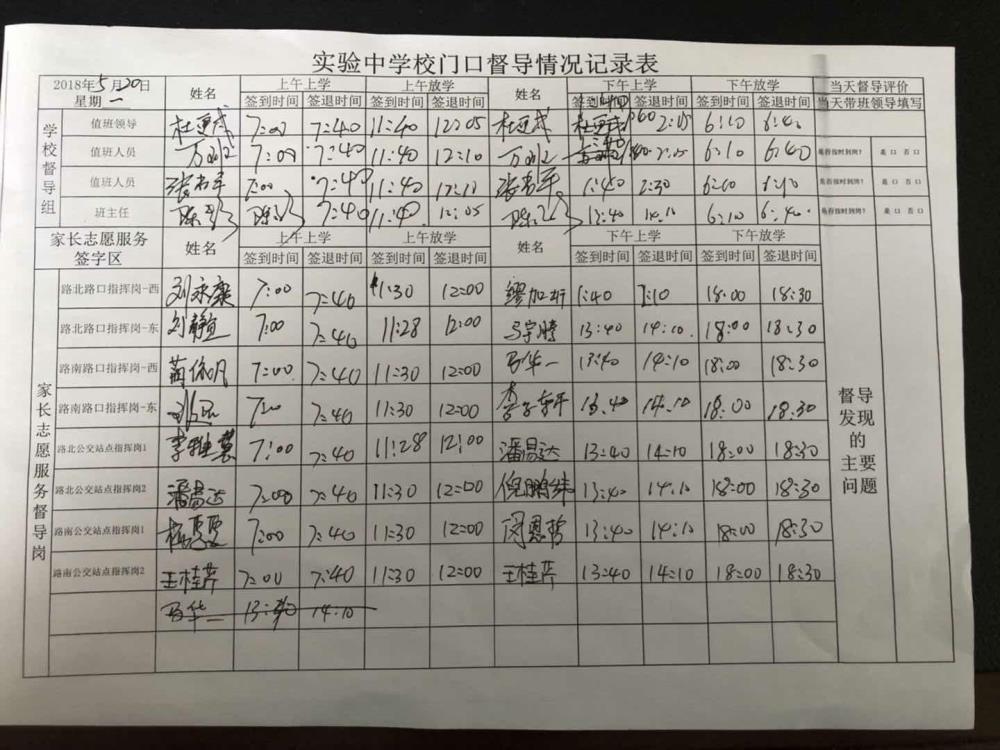 实验中学校门口督导情况记录表
2018年5月20日 星期一 姓名 上午上学 上午放学 姓名 下午上学 下午放学 当天督导评价
签到时间 签退时间 签到时间 签退时间 签到时间 签退时间 签到时间 签退时间 当天带班领导填写
学校督导组
值班领导 7:00 7:40 11:40 12:05 2:15 6:10 6:40
值班人员 7:00 7:40 11:40 12:10 6:10 6:40 是否按时到岗? 是 口 否 口
值班人员 张书平 7:00 7:40 11:40 12:10 张书平 1:40 2:30 6:10 6:10 是否按时到岗? 是 口 否 口
班主任 7:40 11:40 12:05 13:40 14:10 6:10 6:40 是否按时到岗? 是 口 否 口
家长志愿服务签字区 姓名 上午上学 上午放学 姓名 下午上学 下午放学
签到时间 签退时间 签到时间 签退时间 签到时间 签退时间 签到时间 签退时间
家长志愿服务督导岗
路北路口指挥岗-西 刘永康 7:00 7:40 11:30 12:00 1:40 2:10 18:00 18:30
路北路口指挥岗-东 刘静宜 7:00 7:40 11:28 12:00 马宇腾 13:40 14:10 18:00 18:30
路南路口指挥岗-西 7:00 7:40 11:30 12:00 马华一 13:40 14:10 18:00 18:30
路南路口指挥岗-东 7:00 7:40 11:30 12:00 李子轩 13:40 14:10 18:00 18:30
路北公交站点指挥岗1 李雅慧 7:00 7:40 11:28 12:00 潘昌达 13:40 14:10 18:00 18:30
路北公交站点指挥岗2 潘昌达 7:00 7:40 11:30 12:00 倪鹏纬 13:40 14:10 18:00 18:30
路南公交站点指挥岗1 7:00 7:40 11:30 12:00 闵恩哲 13:40 14:10 18:00 18:30
路南公交站点指挥岗2 王桂芹 7:00 7:40 11:30 12:00 王桂芹 13:40 14:10 18:00 18:30
马华一 13:40 14:10
督导发现的主要问题